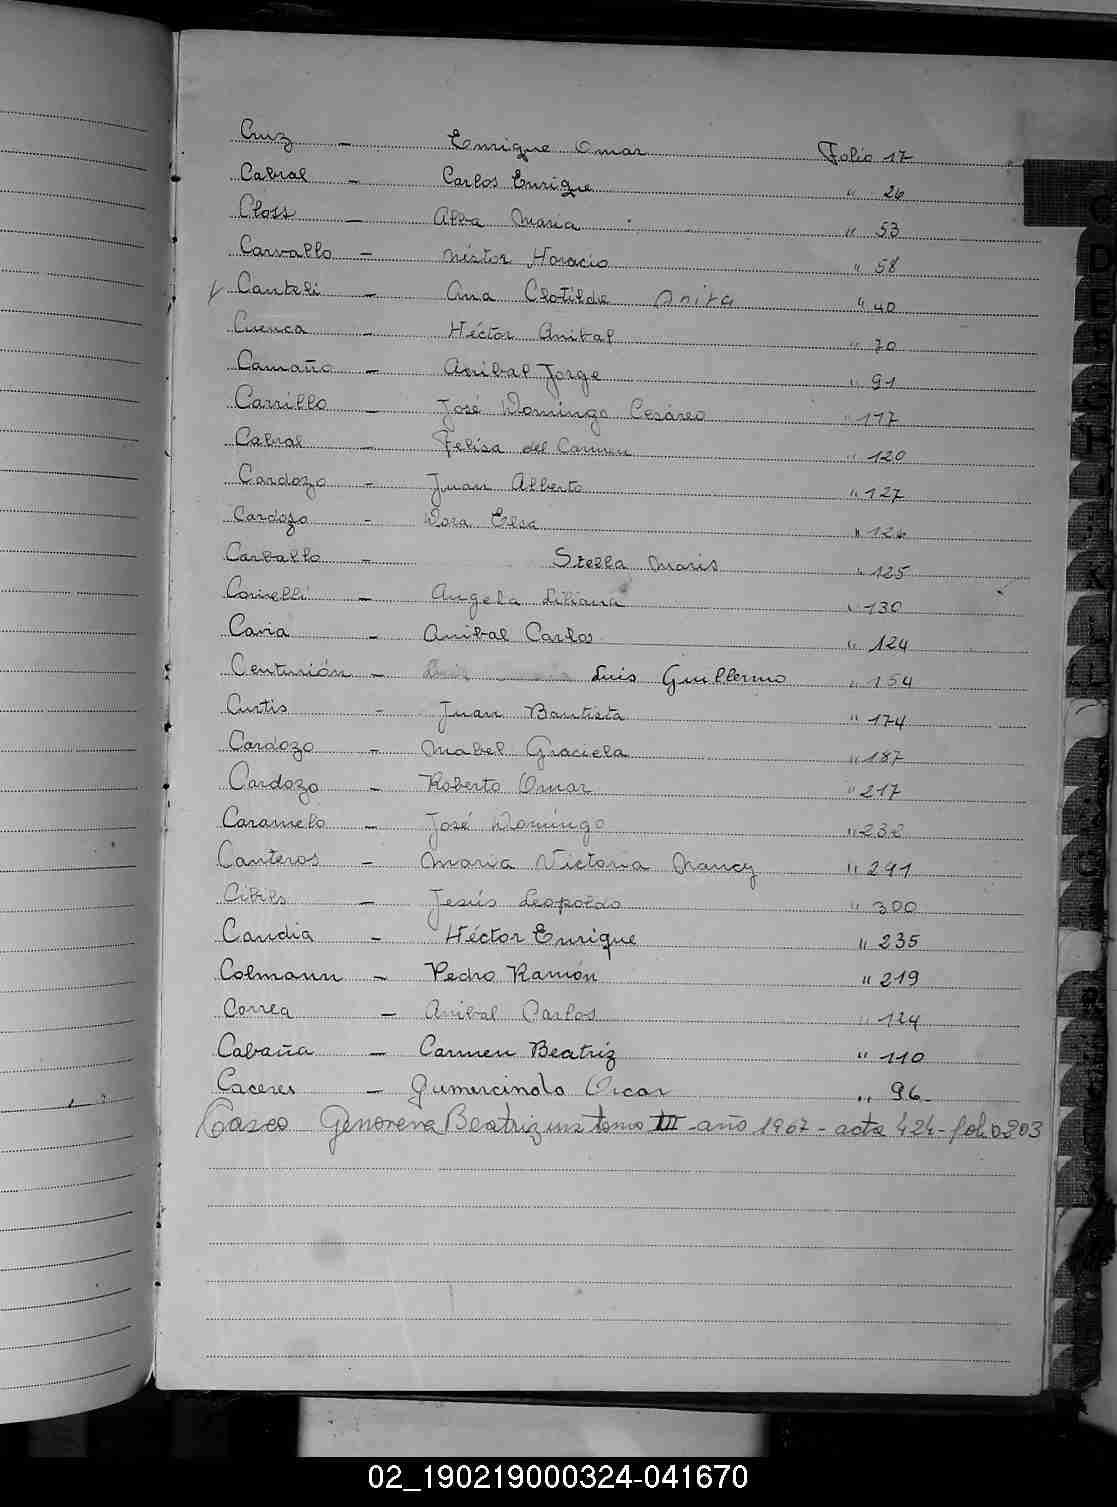 Cruz - Enrique Omar Folio 17
Cabral - Carlos Enrique " 26
Closs - Alba Maria " 53
Carvallo - Néstor Horacio " 58
Canteli - Ana Clotilde Anita " 40
Cuenca - Héctor Anibal " 70
Camaño - Anibal Jorge " 91
Carrillo - José Domingo Cesáreo " 117
Cabral - Felisa del Carmen " 120
Cardozo - Juan Alberto " 127
Cardozo - Dora Elsa " 126
Carballo - Stella Maris " 125
Corielli - Angela Liliana " 130
Cavia - Anibal Carlos " 124
Centurión - Luis Guillermo " 154
Curtis - Juan Bautista " 174
Cardozo - Mabel Graciela " 187
Cardozo - Roberto Omar " 217
Caramelo - José Domingo " 232
Canteros - Maria Victoria Nancy " 291
Cibils - Jesús Leopoldo " 300
Candia - Héctor Enrique " 235
Colmann - Pedro Ramón " 219
Correa - Anibal Carlos " 124
Cabaña - Carmen Beatriz " 110
Caceres - Gumercindo Oscar " 96
Casco Genoveva Beatriz ins tomo III - año 1967 - acta 424 - folio 203
C
D
E
F
02_190219000324-041670